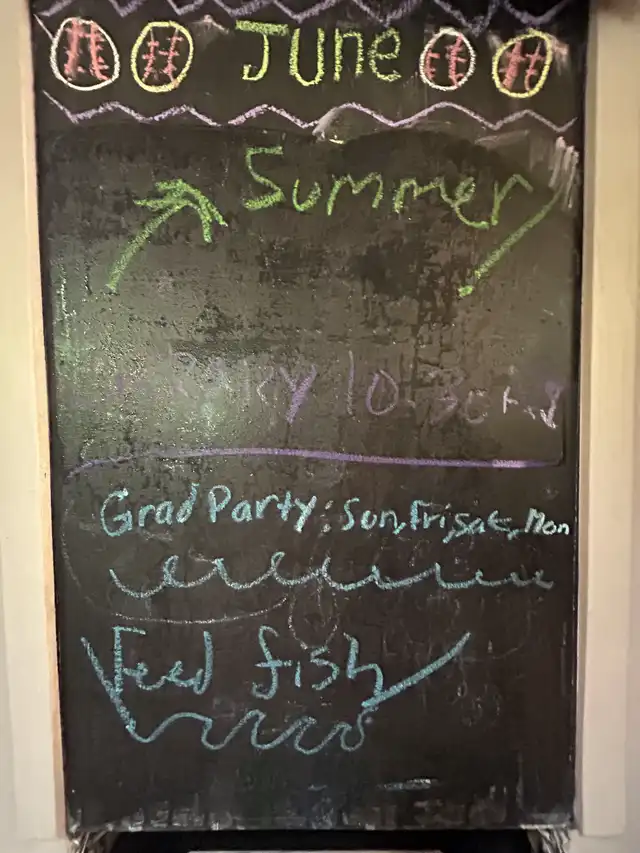 June
Summer
10
Grad Party: Sun, Fri, Sat, Mon
Feed fish